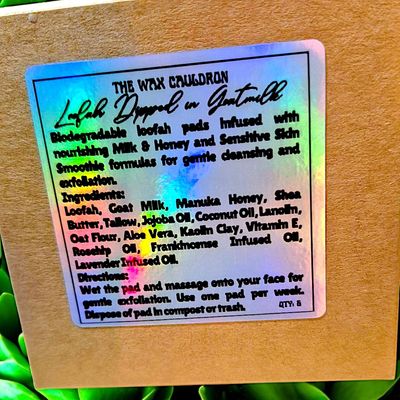 THE WAX CAULDRON
Loofah Dipped in Goatmilk
Biodegradable loofah pads infused with
nourishing Milk & Honey and Sensitive Skin
Smoothie formulas for gentle cleansing and
exfoliation.
Ingredients:
Loofah, Goat Milk, Manuka Honey, Shea
Butter, Tallow, Jojoba Oil, Coconut Oil, Lanolin,
Oat Flour, Aloe Vera, Kaolin Clay, Vitamin E,
Rosehip Oil, Frankincense Infused Oil,
Lavender Infused Oil.
Directions:
Wet the pad and massage onto your face for
gentle exfoliation. Use one pad per week.
Dispose of pad in compost or trash.
QTY: 5